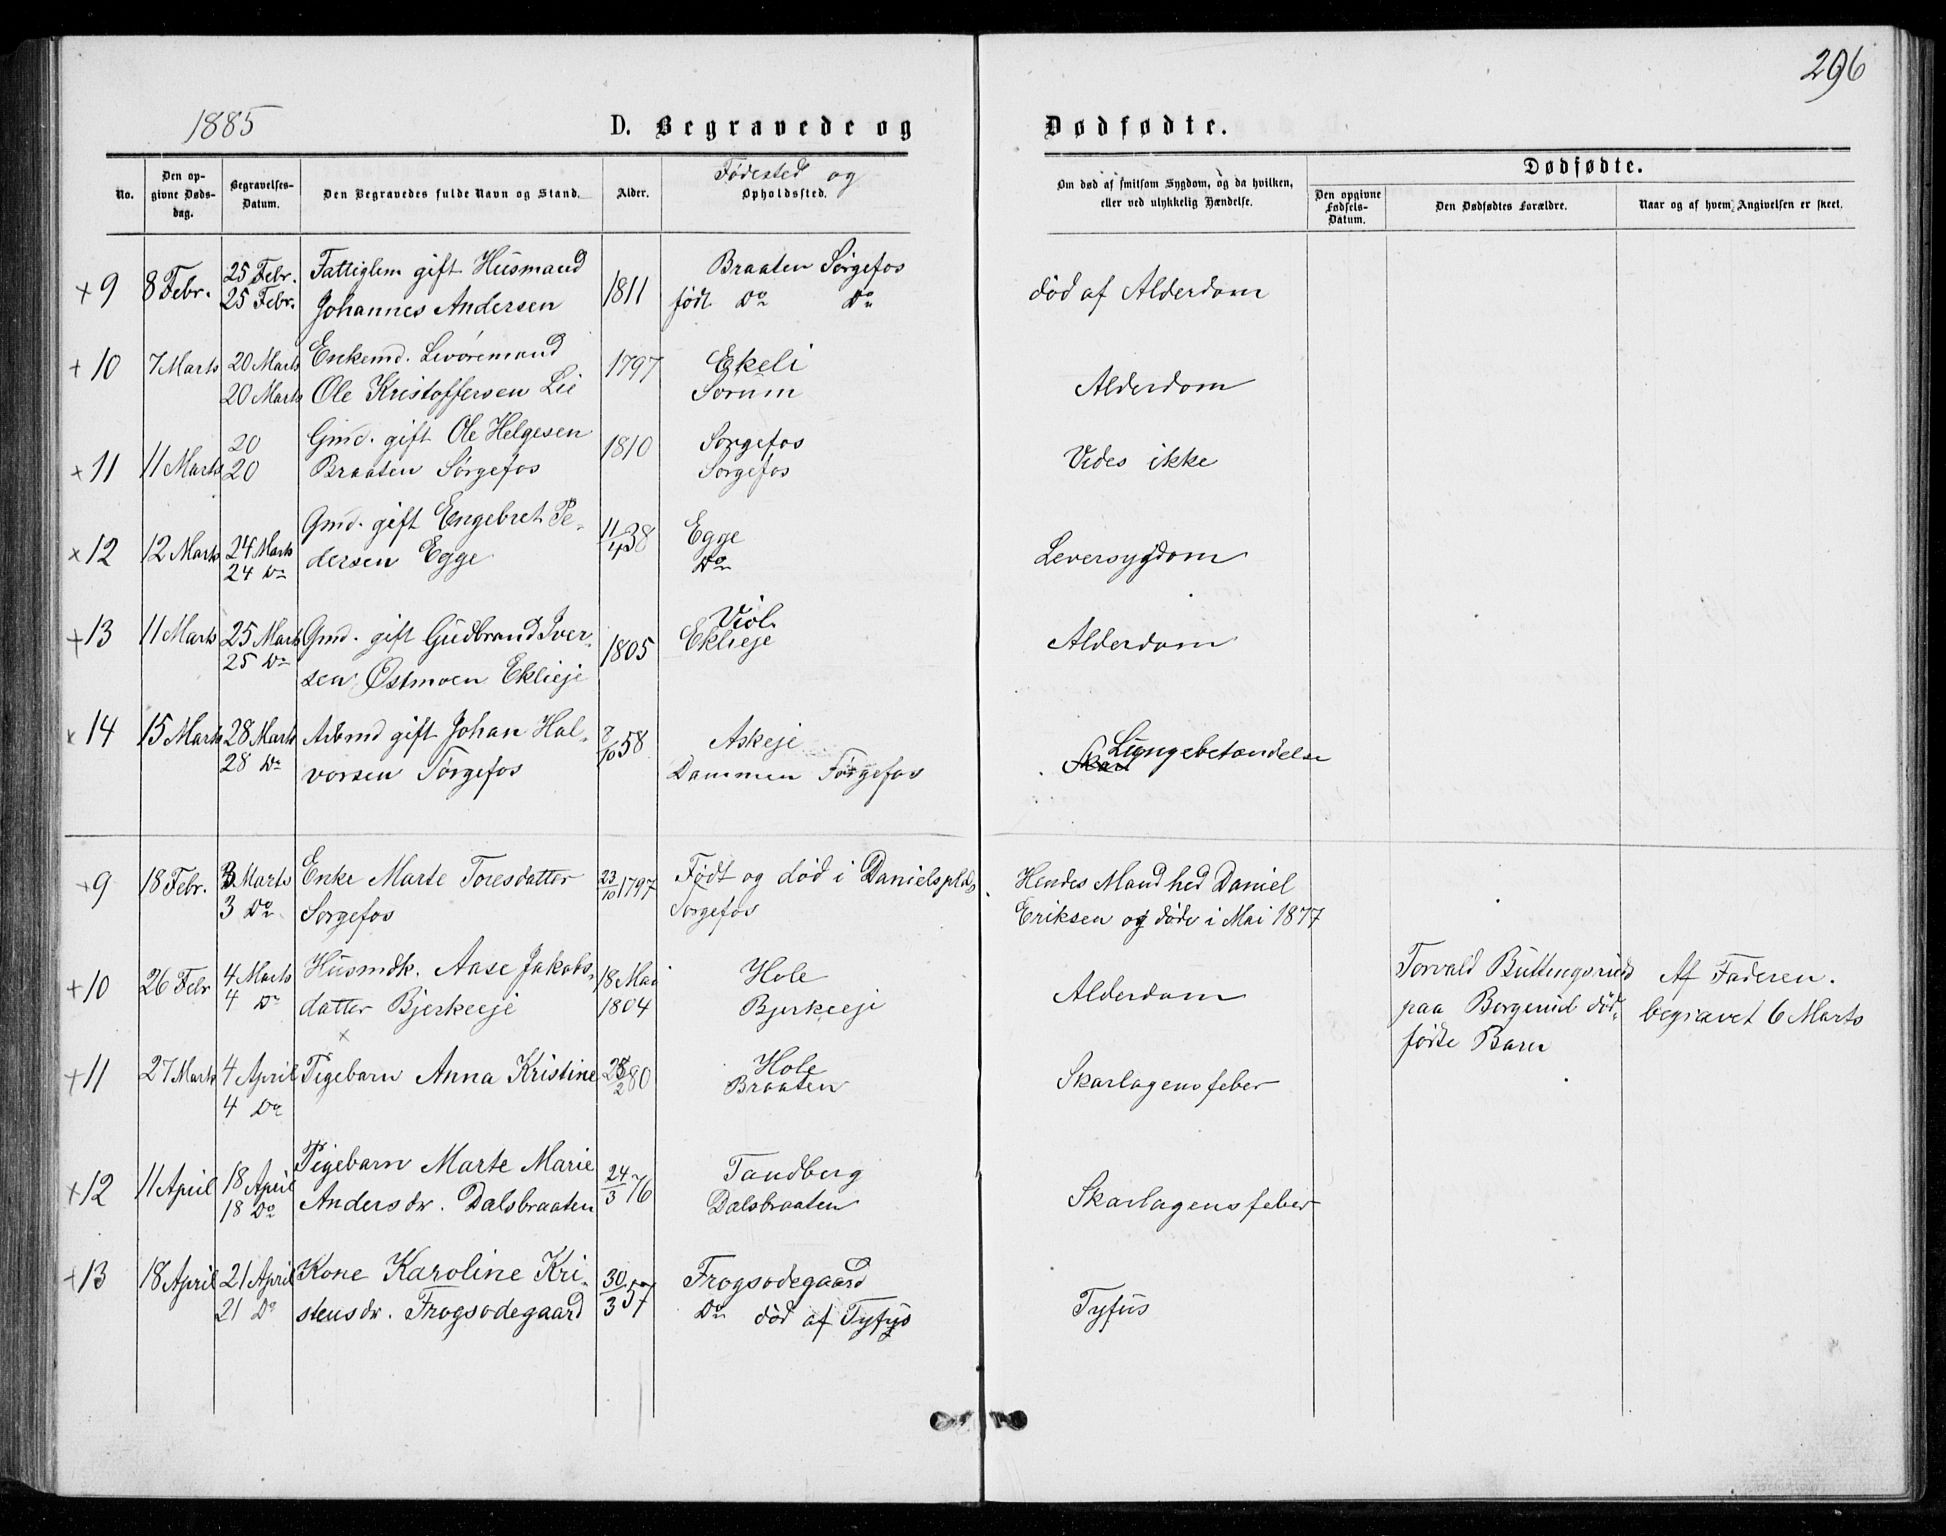 296
1885
D. Begravede og Dødfødte.
No. Den opgivne Dødsdag. Begravelses-Datum. Den Begravedes fulde Navn og Stand. Alder. Fødested og Opholdssted. Om død af smitsom Sygdom, og da hvilken, eller ved ulykkelig Hændelse. Dødfødte. Den opgivne Fødsels-Datum. Den Dødfødtes Forældre. Naar og af hvem Angivelsen er skeet.
25 Febr. Fattiglem gift Husmand Braaten Sørgefos
+9 8 Febr. 25 Febr. Johannes Andersen 1811 født Do Do død af Alderdom
+10 7 Marts 20 Marts Enkemd. 1797 Ekeli
20 Marts Ole Kristoffersen Lie Sorum Alderdom
20 Gmd. gift Ole Helgesen 1810 Sorgefos
x11 11 Marts 20 Braaten Sørgefos Sorgefos Vides ikke
Gmd. gift Engebret Pe-
x12 12 Marts 24 Marts dersen Egge 11/4 38 Egge Leversygdom
24 Do Do
Viol
+13 11 Marts 25 Marts Gmd. gift Gudbrand Iver- 1805 Eklieje Alderdom
25 Do sen Østmoen Eklieje
x14 15 Marts 28 Marts Arbmd gift Johan Hal- 8/10 58 Askeje Lungebetændelse
28 Do vorsen Tørgefos Dammen Tørgefos
+9 18 Febr. 3 Marts Enke Marte Toresdatter 23/10 1797 Født og død i Danielsplds. Hendes Mand hed Daniel
3 Do Sorgefos Sorgefos Eriksen og døde i Mai 1877
+10 26 Febr 4 Marts Husmdk. Aase Jakobs- 18 Mai Hole Alderdom Torvald Buttingsrud Af Faderen.
4 Do datter Bjerkeeje 1804 Bjerkeeje paa Borgerud død- begravet 6 Marts
x fødte Barn
+11 27 Marts 4 April Pigebarn Anna Kristine 28/2 80 Hole Skarlagensfeber
4 Do Braaten
Pigebarn Marte Marie Tandberg
+12 11 April 18 April Andersdr. Dalsbraaten 24/3 76 Dalsbraaten Skarlagensfeber
18 Do
+13 18 April 21 April Kone Karoline Kri- 30/3 57 Frogsodegaard
21 Do stensdr. Frogsodegaard Do død af Tyfus Tyfus